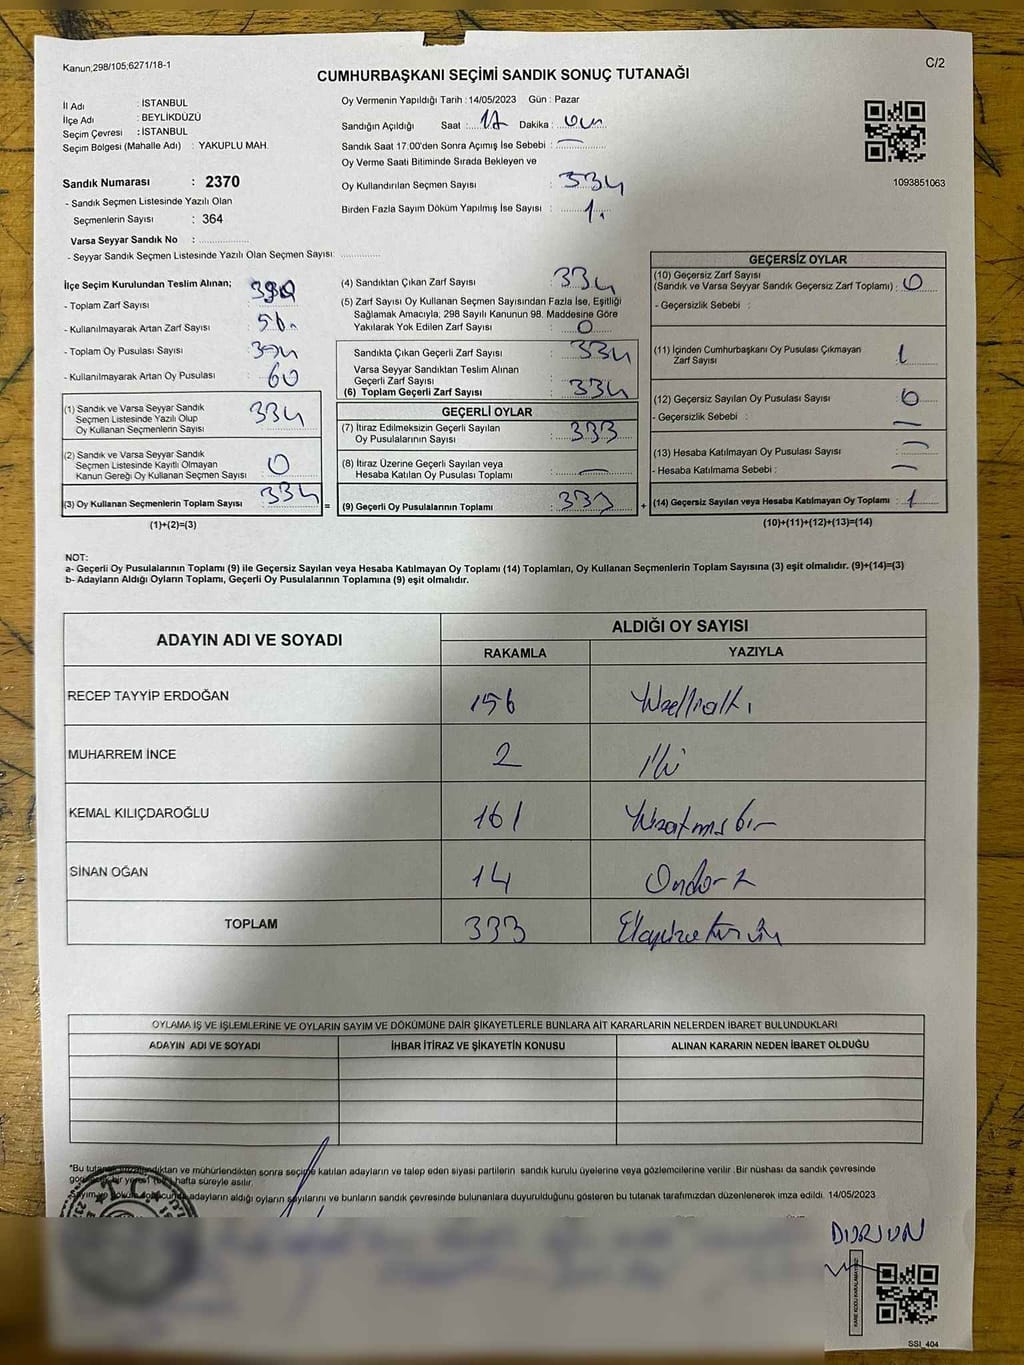 Kanun;298/105;6271/18-1
C/2
CUMHURBAŞKANI SEÇİMİ SANDIK SONUÇ TUTANAĞI
İl Adı : İSTANBUL
İlçe Adı : BEYLİKDÜZÜ
Seçim Çevresi : İSTANBUL
Seçim Bölgesi (Mahalle Adı) : YAKUPLU MAH.
Sandık Numarası : 2370
- Sandık Seçmen Listesinde Yazılı Olan
Seçmenlerin Sayısı : 364
Varsa Seyyar Sandık No :
- Seyyar Sandık Seçmen Listesinde Yazılı Olan Seçmen Sayısı:
Oy Vermenin Yapıldığı Tarih : 14/05/2023 Gün : Pazar
Sandığın Açıldığı Saat : 17 Dakika :
Sandık Saat 17.00'den Sonra Açımış İse Sebebi : —
Oy Verme Saati Bitiminde Sırada Bekleyen ve
Oy Kullandırılan Seçmen Sayısı : 334
Birden Fazla Sayım Döküm Yapılmış İse Sayısı : 1.
1093851063
İlçe Seçim Kurulundan Teslim Alınan;
- Toplam Zarf Sayısı
- Kullanılmayarak Artan Zarf Sayısı : 56
- Toplam Oy Pusulası Sayısı : 394
- Kullanılmayarak Artan Oy Pusulası : 60
(1) Sandık ve Varsa Seyyar Sandık
Seçmen Listesinde Yazılı Olup
Oy Kullanan Seçmenlerin Sayısı : 334
(2) Sandık ve Varsa Seyyar Sandık
Seçmen Listesinde Kayıtlı Olmayan
Kanun Gereği Oy Kullanan Seçmen Sayısı : 0
(3) Oy Kullanan Seçmenlerin Toplam Sayısı : 334
(1)+(2)=(3)
(4) Sandıktan Çıkan Zarf Sayısı : 334
(5) Zarf Sayısı Oy Kullanan Seçmen Sayısından Fazla İse, Eşitliği
Sağlamak Amacıyla; 298 Sayılı Kanunun 98. Maddesine Göre
Yakılarak Yok Edilen Zarf Sayısı : 0
Sandıkta Çıkan Geçerli Zarf Sayısı : 334
Varsa Seyyar Sandıktan Teslim Alınan
Geçerli Zarf Sayısı
(6) Toplam Geçerli Zarf Sayısı : 334
GEÇERLİ OYLAR
(7) İtiraz Edilmeksizin Geçerli Sayılan
Oy Pusulalarının Sayısı : 333
(8) İtiraz Üzerine Geçerli Sayılan veya
Hesaba Katılan Oy Pusulası Toplamı : —
= (9) Geçerli Oy Pusulalarının Toplamı : 333
GEÇERSİZ OYLAR
(10) Geçersiz Zarf Sayısı
(Sandık ve Varsa Seyyar Sandık Geçersiz Zarf Toplamı) : 0
- Geçersizlik Sebebi :
(11) İçinden Cumhurbaşkanı Oy Pusulası Çıkmayan
Zarf Sayısı : 1
(12) Geçersiz Sayılan Oy Pusulası Sayısı : 0
- Geçersizlik Sebebi : —
(13) Hesaba Katılmayan Oy Pusulası Sayısı : —
- Hesaba Katılmama Sebebi : —
+ (14) Geçersiz Sayılan veya Hesaba Katılmayan Oy Toplamı : 1
(10)+(11)+(12)+(13)=(14)
NOT:
a- Geçerli Oy Pusulalarının Toplamı (9) ile Geçersiz Sayılan veya Hesaba Katılmayan Oy Toplamı (14) Toplamları, Oy Kullanan Seçmenlerin Toplam Sayısına (3) eşit olmalıdır. (9)+(14)=(3)
b- Adayların Aldığı Oyların Toplamı, Geçerli Oy Pusulalarının Toplamına (9) eşit olmalıdır.
ADAYIN ADI VE SOYADI
ALDIĞI OY SAYISI
RAKAMLA YAZIYLA
RECEP TAYYİP ERDOĞAN 156 Yüzellialtı
MUHARREM İNCE 2 İki
KEMAL KILIÇDAROĞLU 161 Yüzatmışbir
SİNAN OĞAN 14 Ondört
TOPLAM 333
OYLAMA İŞ VE İŞLEMLERİNE VE OYLARIN SAYIM VE DÖKÜMÜNE DAİR ŞİKAYETLERLE BUNLARA AİT KARARLARIN NELERDEN İBARET BULUNDUKLARI
ADAYIN ADI VE SOYADI İHBAR İTİRAZ VE ŞİKAYETİN KONUSU ALINAN KARARIN NEDEN İBARET OLDUĞU
*Bu tutanak imzalandıktan ve mühürlendikten sonra seçime katılan adayların ve talep eden siyasi partilerin sandık kurulu üyelerine veya gözlemcilerine verilir .Bir nüshası da sandık çevresinde
görülecek bir yere 1 (bir) hafta süreyle asılır.
Sayım ve döküm sonucunda adayların aldığı oyların sayılarını ve bunların sandık çevresinde bulunanlara duyurulduğunu gösteren bu tutanak tarafımızdan düzenlenerek imza edildi. 14/05/2023
T.C.
DURSUN
SSI_404